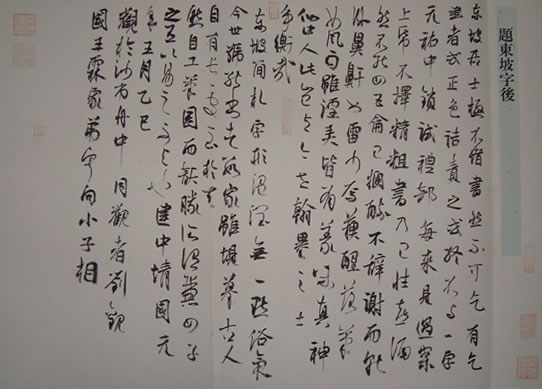 題東坡字後
東坡居士極不惜書然不可乞有乞
書者或正色詰責之或終不与一字
元祐中鎖試禮部每來見過案
上帋不擇精粗書乃已性喜酒
然不能四五龠已爛醉不辭謝而就
臥鼻鼾如雷少焉蘇醒落筆
如風雨雖謔美皆有義味真神
仙中人此豈与今世翰墨之士
爭衡哉
東坡簡札字形溫潤無一點俗氣
今世號能書者數家雖規摹古人
自有長處至於天
然自工筆圓而韻勝所謂兼四子
之有以易之不与也建中靖國元
年五月乙巳
觀於沙市舟中同觀者劉觀
國王霖家弟叔向小子相